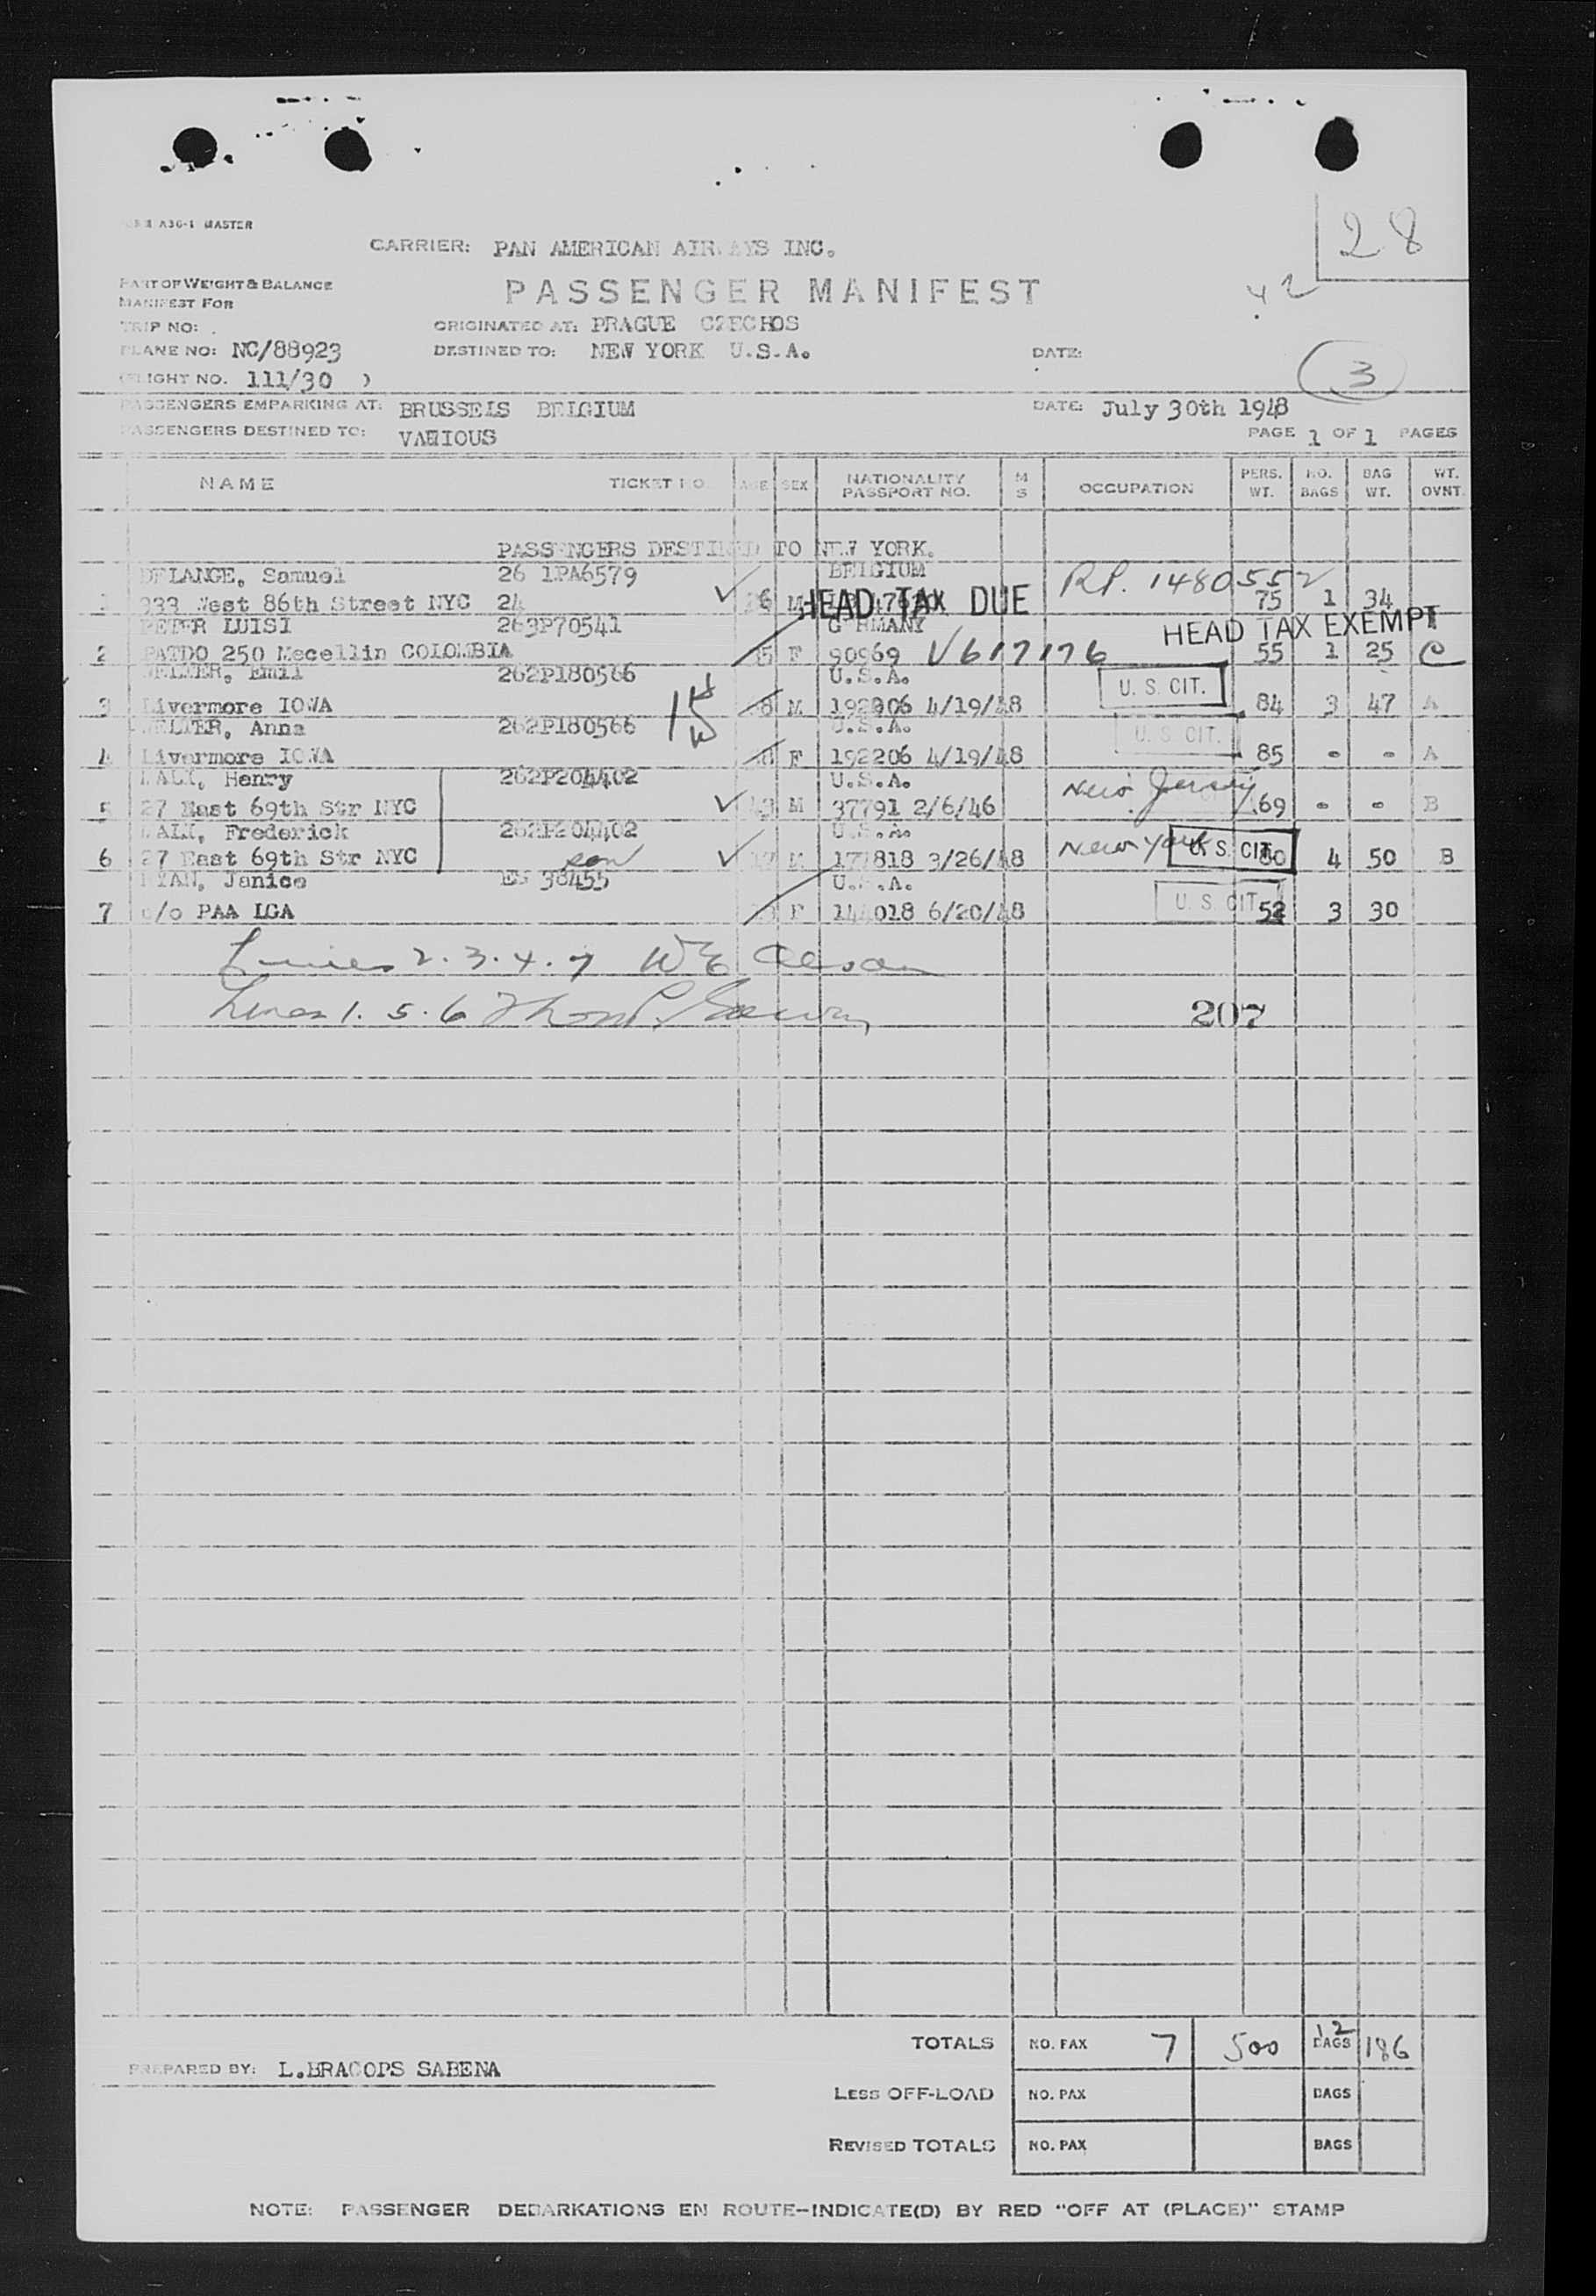 A36-1 MASTER
28
CARRIER: PAN AMERICAN AIRWAYS INC.
PART OF WEIGHT & BALANCE
MANIFEST FOR
PASSENGER MANIFEST
42
TRIP NO:
ORIGINATED AT: PRAGUE CZECHOS
PLANE NO: NC/88923
DESTINED TO: NEW YORK U.S.A.
DATE:
3
(FLIGHT NO. 111/30 )
PASSENGERS EMPARKING AT: BRUSSELS BELGIUM
DATE: July 30th 1948
PASSENGERS DESTINED TO: VARIOUS
PAGE 1 OF 1 PAGES
NAME TICKET NO. AGE SEX NATIONALITY PASSPORT NO. M S OCCUPATION PERS. WT. NO. BAGS BAG WT. WT. OVNT.
PASSENGERS DESTINED TO NEW YORK.
DELANGE, Samuel 26 1PA6579 BELGIUM RP. 1480552
1 333 West 86th Street NYC 24 M HEAD TAX DUE 75 1 34
PETER LUISI 263P70541 GERMANY HEAD TAX EXEMPT
2 PATDO 250 Mecellin COLOMBIA F 90969 V617176 55 1 25 C
WELTER, Emil 262P180566 U.S.A. U.S. CIT.
3 Livermore IOWA M 192206 4/19/48 84 3 47 A
WELTER, Anna 262P180566 U.S.A. U.S. CIT.
4 Livermore IOWA F 192206 4/19/48 85 - - A
Henry 262P204402 U.S.A. New Jersey
5 27 East 69th Str NYC M 37791 2/6/46 69 - - B
Frederick 262P204402 U.S.A. New York U.S. CIT.
6 27 East 69th Str NYC son M 818 3/26/48 80 4 50 B
Janice 38455 U.S.A. U.S. CIT.
7 c/o PAA LGA F 018 6/20/48 52 3 30
Lines 2.3.4.7
Lines 1.5.6
207
TOTALS NO. PAX 7 500 12 BAGS 186
PREPARED BY: L.BRACOPS SABENA
LESS OFF-LOAD NO. PAX BAGS
REVISED TOTALS NO. PAX BAGS
NOTE: PASSENGER DEBARKATIONS EN ROUTE-INDICATE(D) BY RED "OFF AT (PLACE)" STAMP